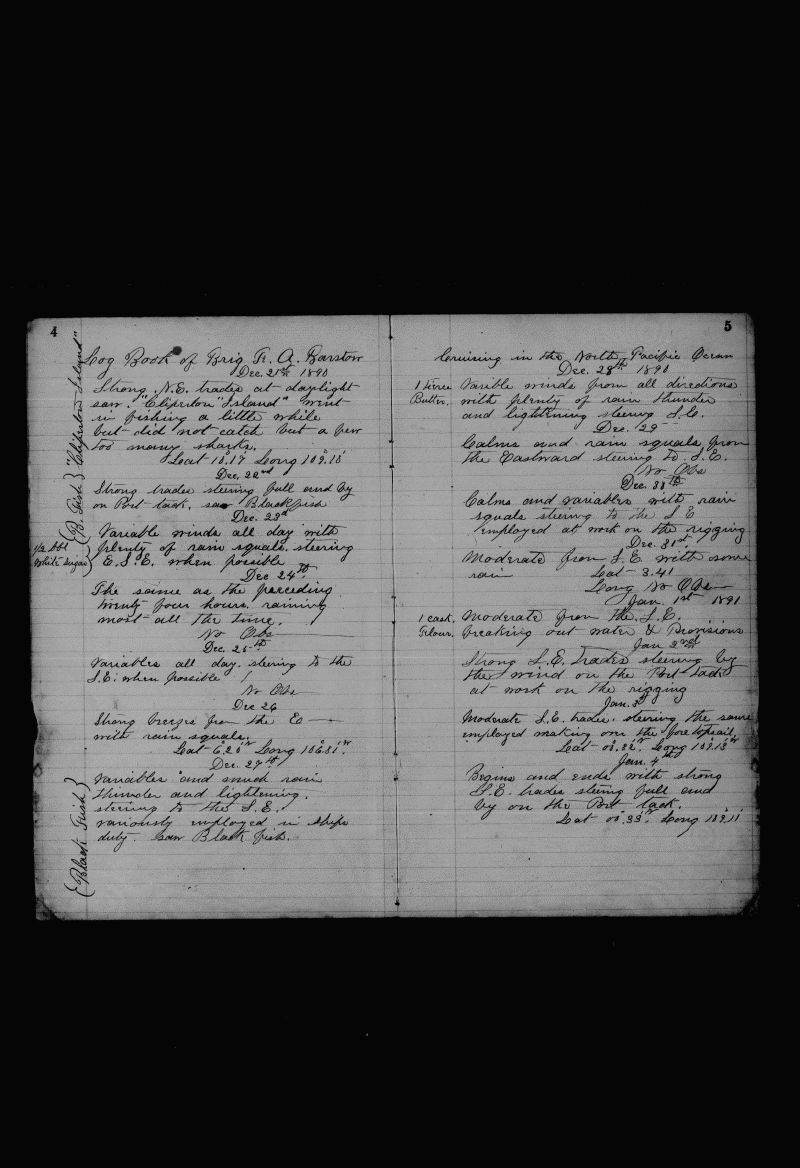 4
Log Book of Brig F. A. Barstow
Dec. 21st 1890
Strong N.E. trades at daylight
saw "Cliperton Island" went
in fishing a little while
but did not catch but a few
too many sharks.
Lat 10°.17' Long 109°.18'
Dec. 22nd
Strong trades steering full and by
on Port tack. saw Blackfish
Dec. 23d
Variable winds all day with
plenty of rain squals. steering
E.S.E. when possible
Dec 24th
The same as the preceding
twenty four hours. raining
most all the time.
No Obs
Dec. 25th
Variables all day. steering to the
S.E. when possible
No Obs
Dec 26
Strong breezes from the E
with rain squals.
Lat 6°.28' Long 106°
Dec. 27th
Variables and much rain
thunder and lightening.
steering to the S.E.
variously employed in ships
duty. saw Black fish.
"Cliperton Island"
(B. Fish)
1/2 bbl
White sugar
(Black Fish)
5
Cruising in the North Pacific Ocean
Dec. 28th 1890
1 tierce
Butter.
Varible winds from all directions
with plenty of rain thunder
and lightening steering S.E.
Dec. 29
Calms and rain squals from
the Eastward steering to S.E.
No Obs
Dec. 30th
Calms and variables with rain
squals steering to the S E
employed at work on the rigging
Dec. 31st
Moderate from S.E. with some
rain Lat 3.41
Long No Obs
Jan. 1st 1891
1 cask
Flour.
Moderate from the S.E.
breaking out water & Provisions
Jan 2nd
Strong S.E. trades steering by
the wind on the Port tack
at work on the rigging
Jan. 3d
Moderate S.E. trades. steering the same
employed making over the foretopsail
Lat 0°.32' Long 109°.13' W
Jan. 4th
Begins and ends with strong
S.E. trades steering full and
by on the Port tack.
Lat 00°.33' Long 109°.11'